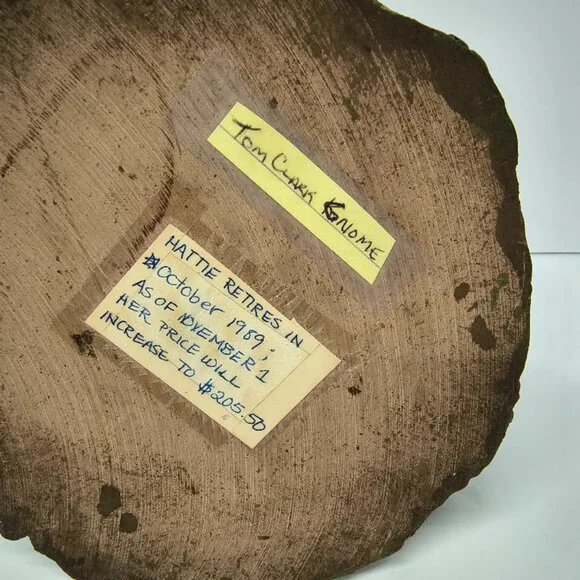 Tom Clark Gnome
HATTIE RETIRES IN
October 1989;
AS OF NOVEMBER 1
HER PRICE WILL
INCREASE TO $205.50